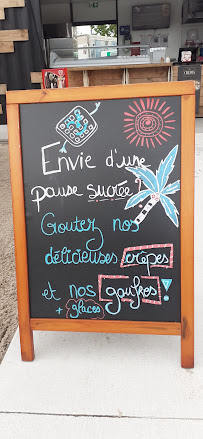 Envie d'une
pause sucrée ?
Goutez nos
délicieuses crêpes
et nos gaufres !
+ glaces